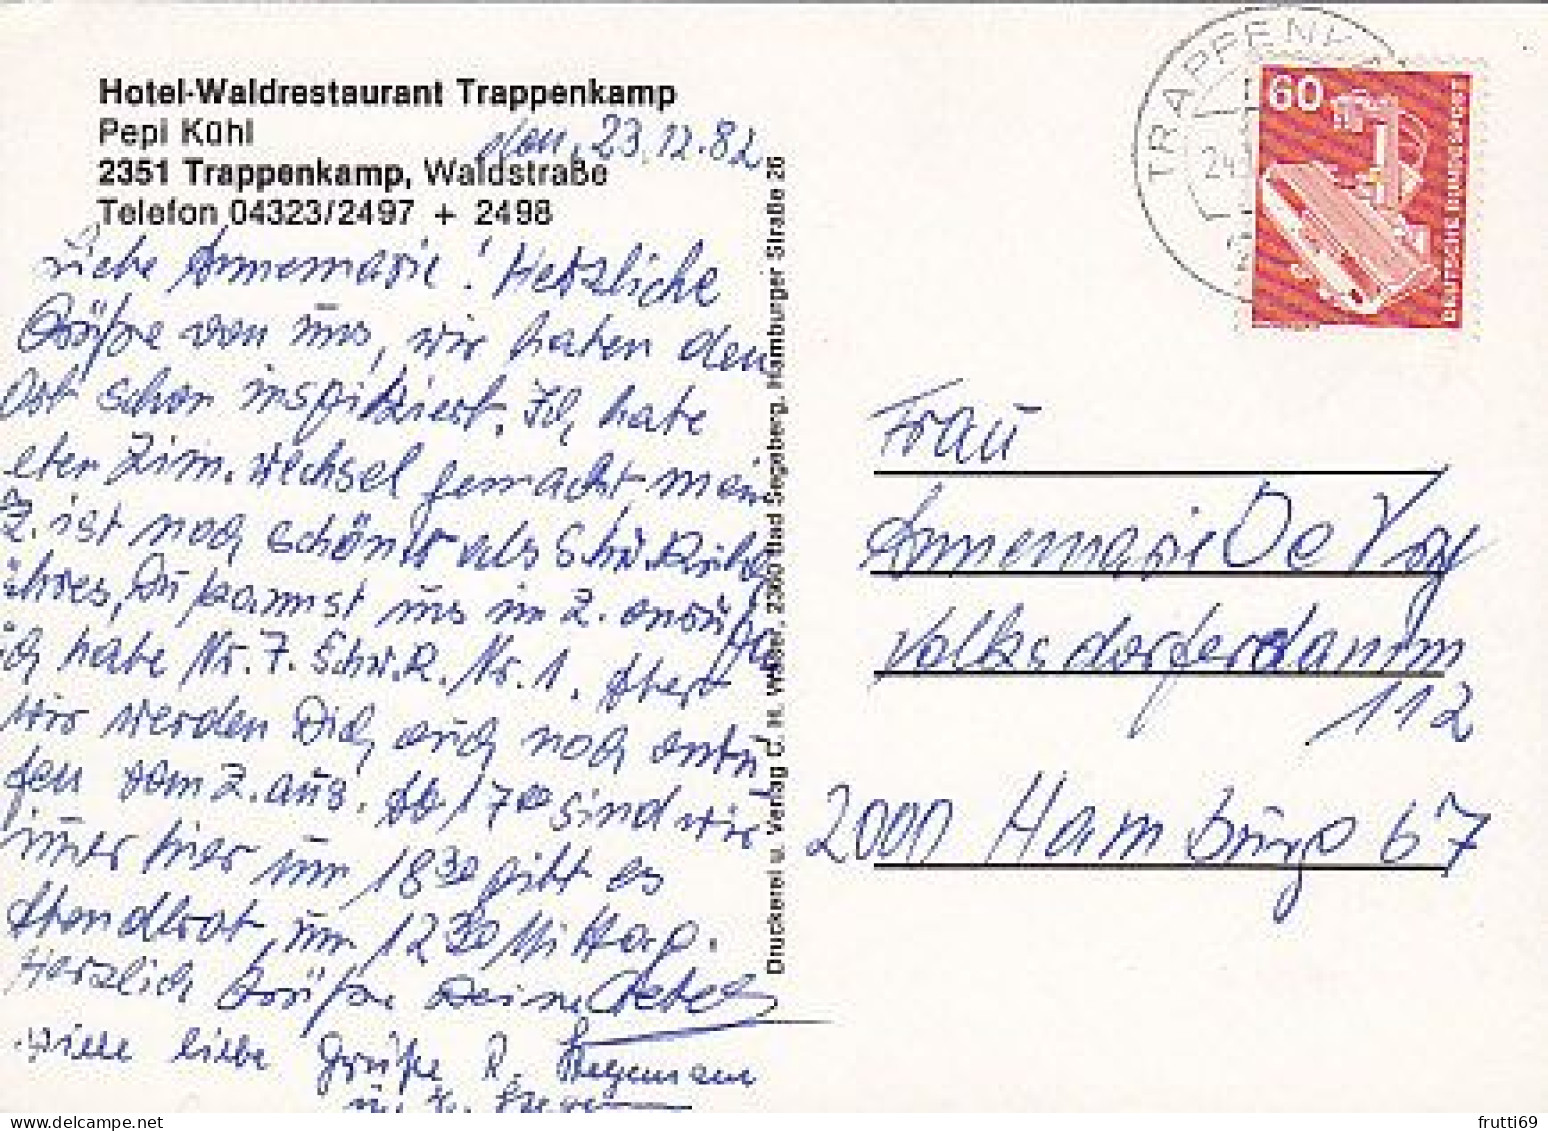 Hotel-Waldrestaurant Trappenkamp
Pepi Kühl
den, 23.12.82
2351 Trappenkamp, Waldstraße
Telefon 04323/2497 + 2498
Liebe Annemarie! Herzliche
Grüße von uns, wir haben den
Ort schon inspiziert. Ich habe
eben Zim. Wechsel gemacht, mein
Z. ist noch schöner als Schw.
Du kannst uns im Z. anrufen
ich habe Nr. 7. Schw. R. Nr. 1. Aber
wir werden Dich auch noch anru
fen vom Z. aus. Ab 17 00 sind wir
immer hier um 18 30 gibt es
Abendbrot, um 12 30 Mittag.
Herzlich Grüße Deine
Viele liebe Grüße R.
Druckerei u. Verlag C. H. Wäser, 2360 Bad Segeberg, Hamburger Straße 26
TRAPPENKA
24.
60
DEUTSCHE BUNDESPOST
Frau
Annemarie De Voy
Volksdorferdamm
112
2000 Hamburg 67
frutti69